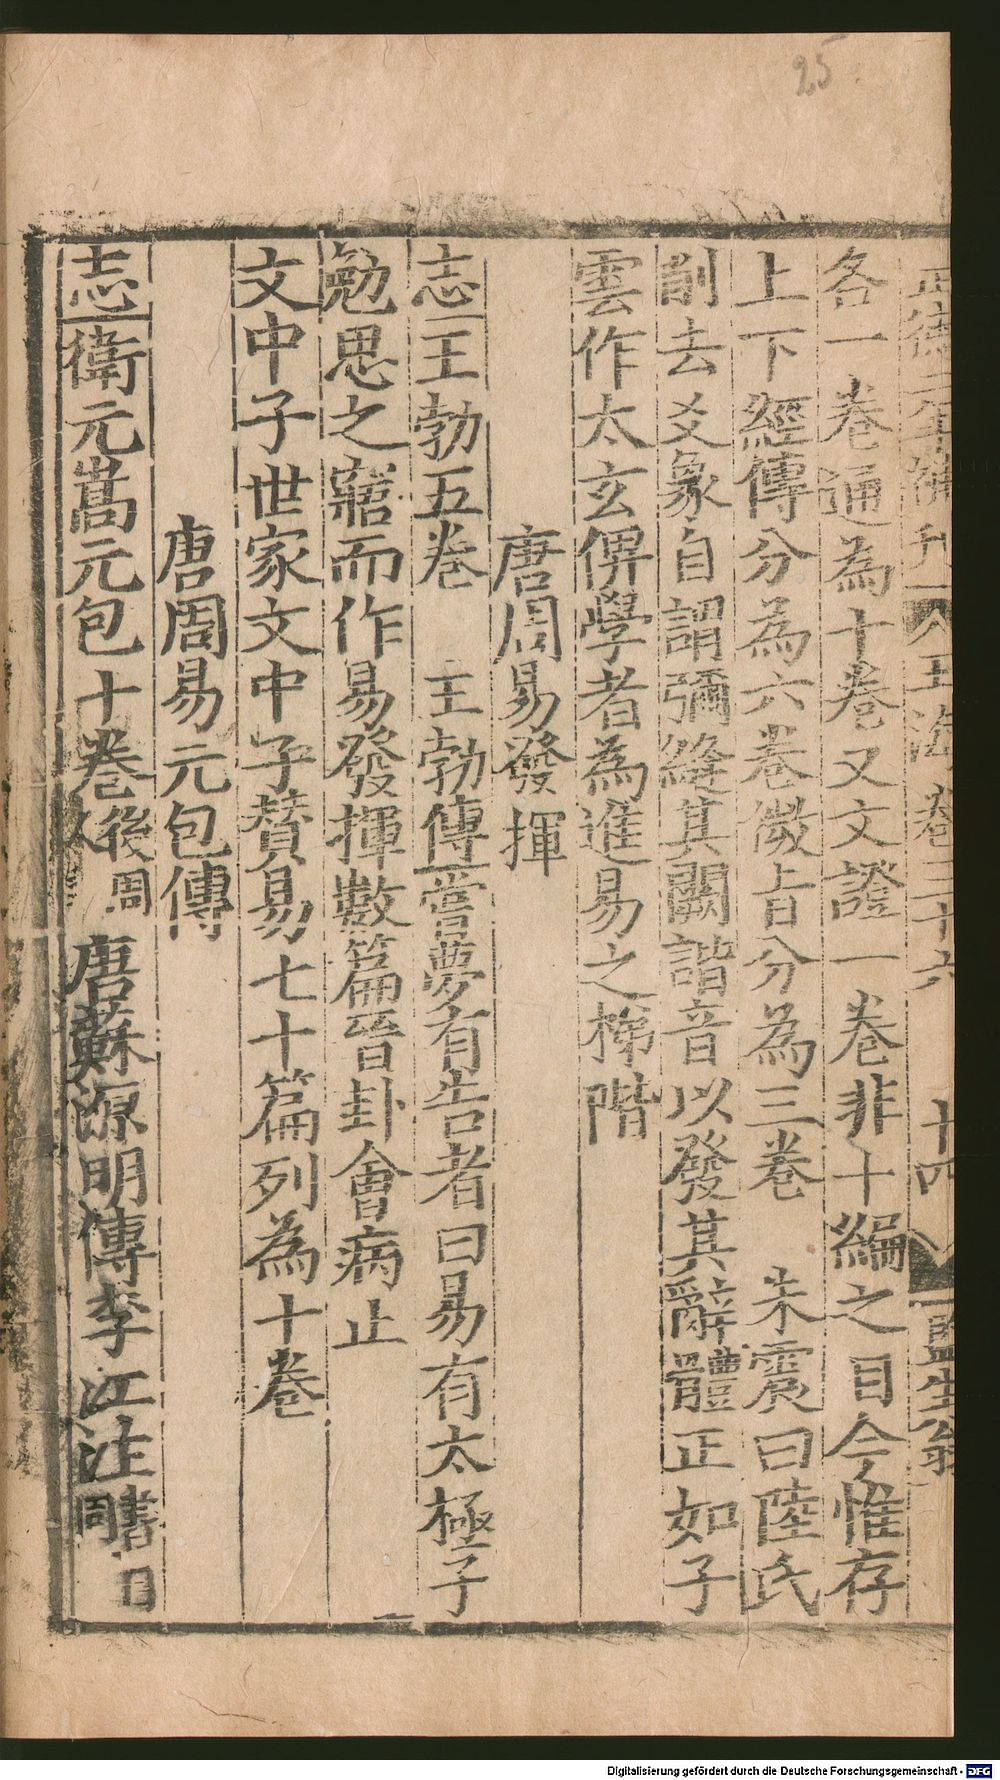 25
各一卷通為十卷又文證一卷非十編之目今惟存
上下經傳分為六卷微旨分為三卷 朱震曰陸氏
削去爻彖自謂彌縫其闕諧音以發其辭體正如子
雲作太玄俾學者為進易之梯階
唐周易發揮
志王勃五卷 王勃傳嘗夢有告者曰易有太極子
勉思之寤而作易發揮數篇晉卦會病止
文中子世家文中子贊易七十篇列為十卷
唐周易元包傳
志衛元嵩元包十卷後周 唐蘇源明傳李江注書目
Digitalisierung gefördert durch die Deutsche Forschungsgemeinschaft - DFG